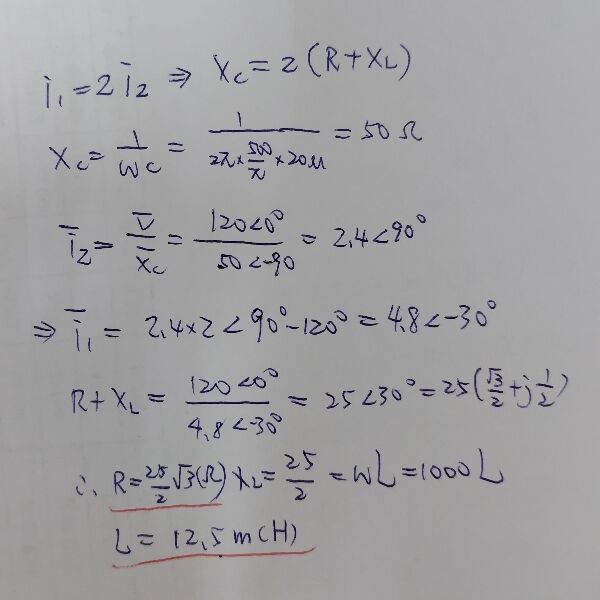 i̅₁ = 2 i̅₂ ⇒ X_C = 2 (R + X_L)
X_C = 1/WC = 1/(2π × 500/π × 20μ) = 50 Ω
i̅₂ = V̅/X̅_C = 120<0°/50<-90 = 2,4<90°
⇒ i̅₁ = 2,4×2 < 90°-120° = 4,8<-30°
R + X_L = 120<0°/4,8<-30° = 25<30° = 25(√3/2 + j 1/2)
∴ R = 25/2 √3 (Ω) X_L = 25/2 = WL = 1000 L
L = 12,5 m(H)